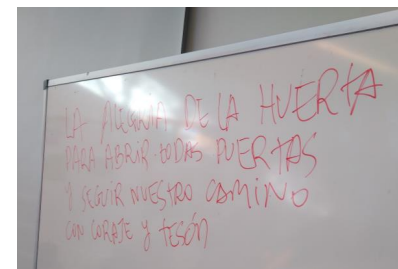 LA ALEGRÍA DE LA HUERTA
PARA ABRIR TODAS PUERTAS
Y SEGUIR NUESTRO CAMINO
CON CORAJE Y TESÓN